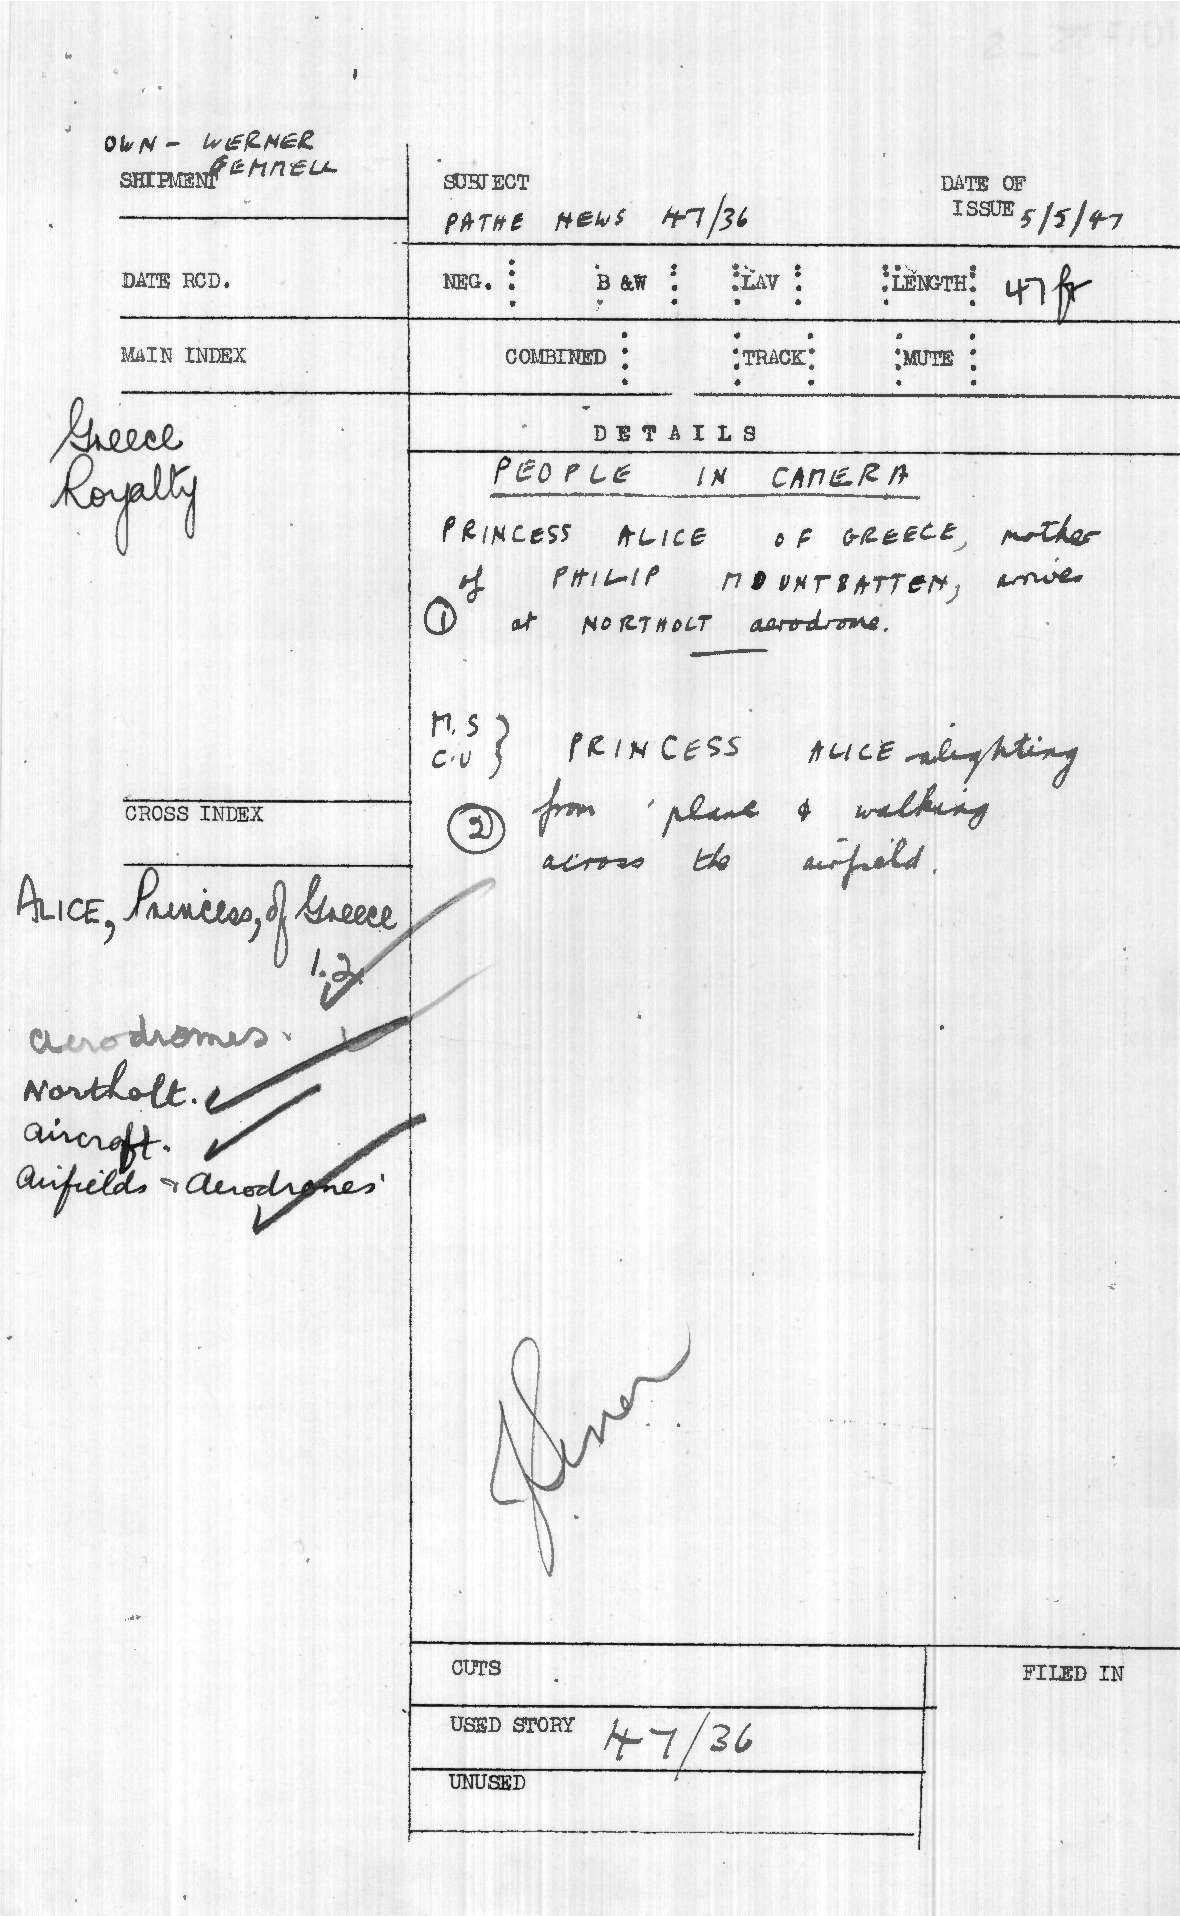 OWN - WERNER
GEMMELL
SHIPMENT
SUBJECT
PATHE NEWS 47/36
DATE OF
ISSUE 5/5/47
DATE RCD.
NEG. B &W LAV LENGTH 47 ft
MAIN INDEX
COMBINED TRACK MUTE
Greece
Royalty
DETAILS
PEOPLE IN CAMERA
PRINCESS ALICE OF GREECE, mother
of PHILIP MOUNTBATTEN, arrives
① at NORTHOLT aerodrome.
M.S
C.U } PRINCESS ALICE alighting
② from 'plane & walking
across the airfield.
CROSS INDEX
ALICE, Princess, of Greece
1.2
aerodromes.
Northolt.
aircraft.
Airfields + Aerodromes
CUTS
FILED IN
USED STORY 47/36
UNUSED